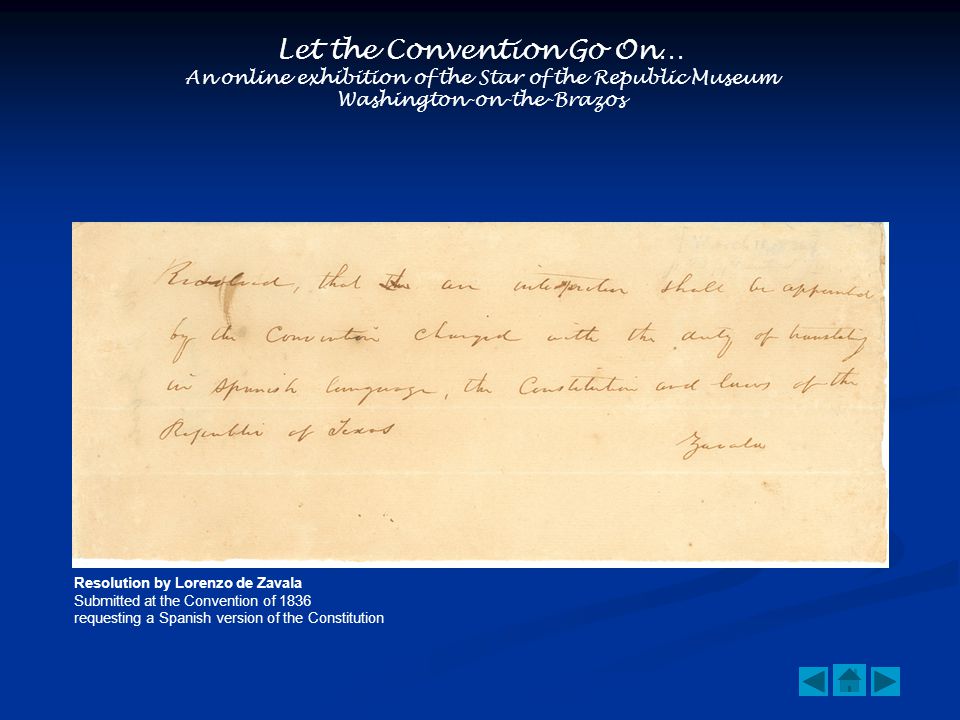 Let the Convention Go On...
An online exhibition of the Star of the Republic Museum
Washington-on-the-Brazos
Resolved, that an interpreter shall be appointed
by the Convention charged with the duty of translating
in Spanish language, the Constitution and laws of the
Republic of Texas
Zavala
Resolution by Lorenzo de Zavala
Submitted at the Convention of 1836
requesting a Spanish version of the Constitution